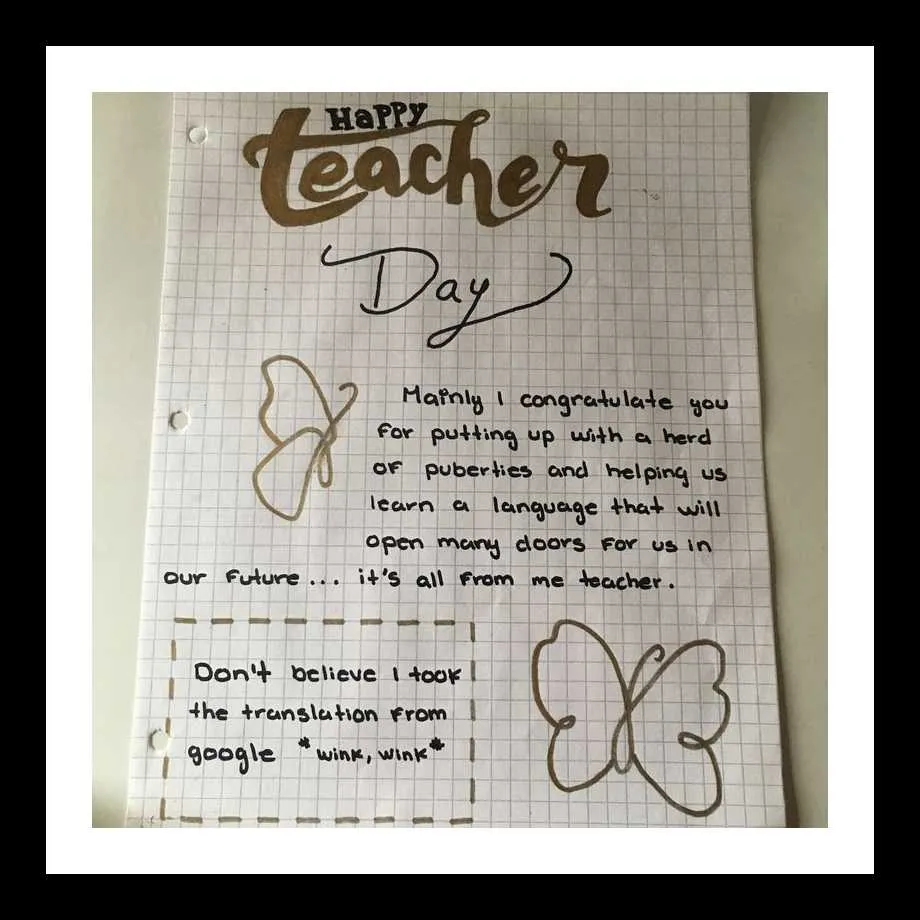 Happy
teacher
Day
Mainly I congratulate you
for putting up with a herd
of puberties and helping us
learn a language that will
open many doors for us in
our future... it's all from me teacher.
Don't believe I took
the translation from
google *wink, wink*